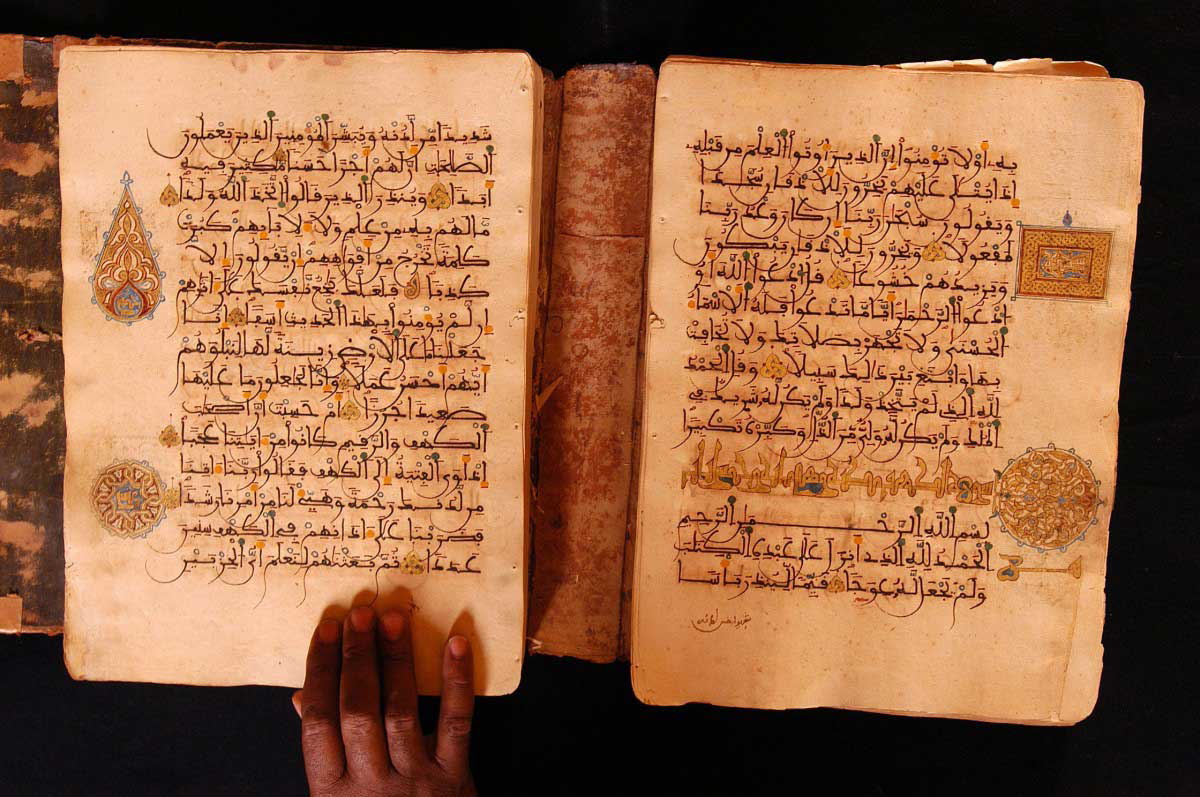 به أو لا تؤمنوا إن الذين أوتوا العلم من قبله
إذا يتلى عليهم يخرون للأذقان سجدا
ويقولون سبحن ربنا إن كان وعد ربنا
لمفعولا ويخرون للأذقان يبكون
ويزيدهم خشوعا قل ادعوا الله أو
ادعوا الرحمن أيا ما تدعوا فله الأسماء
الحسنى ولا تجهر بصلاتك ولا تخافت
بها وابتغ بين ذلك سبيلا وقل الحمد
لله الذي لم يتخذ ولدا ولم يكن له شريك في
الملك ولم يكن له ولي من الذل وكبره تكبيرا
بسم الله الرحمن الرحيم
الحمد لله الذي أنزل على عبده الكتب
ولم يجعل له عوجا قيما لينذر بأسا
شديدا من لدنه ويبشر المؤمنين الذين يعملون
الصلحت أن لهم أجرا حسنا مكثين فيه
أبدا وينذر الذين قالوا اتخذ الله ولدا
ما لهم به من علم ولا لآبائهم كبرت
كلمة تخرج من أفوههم إن يقولون إلا
كذبا فلعلك بخع نفسك على آثرهم
إن لم يؤمنوا بهذا الحديث أسفا إنا
جعلنا ما على الأرض زينة لها لنبلوهم
أيهم أحسن عملا وإنا لجعلون ما عليها
صعيدا جرزا أم حسبت أن أصحب
الكهف والرقيم كانوا من ءايتنا عجبا
إذ أوى الفتية إلى الكهف فقالوا ربنا ءاتنا
من لدنك رحمة وهيئ لنا من أمرنا رشدا
فضربنا على ءاذانهم في الكهف سنين
عددا ثم بعثنهم لنعلم أي الحزبين